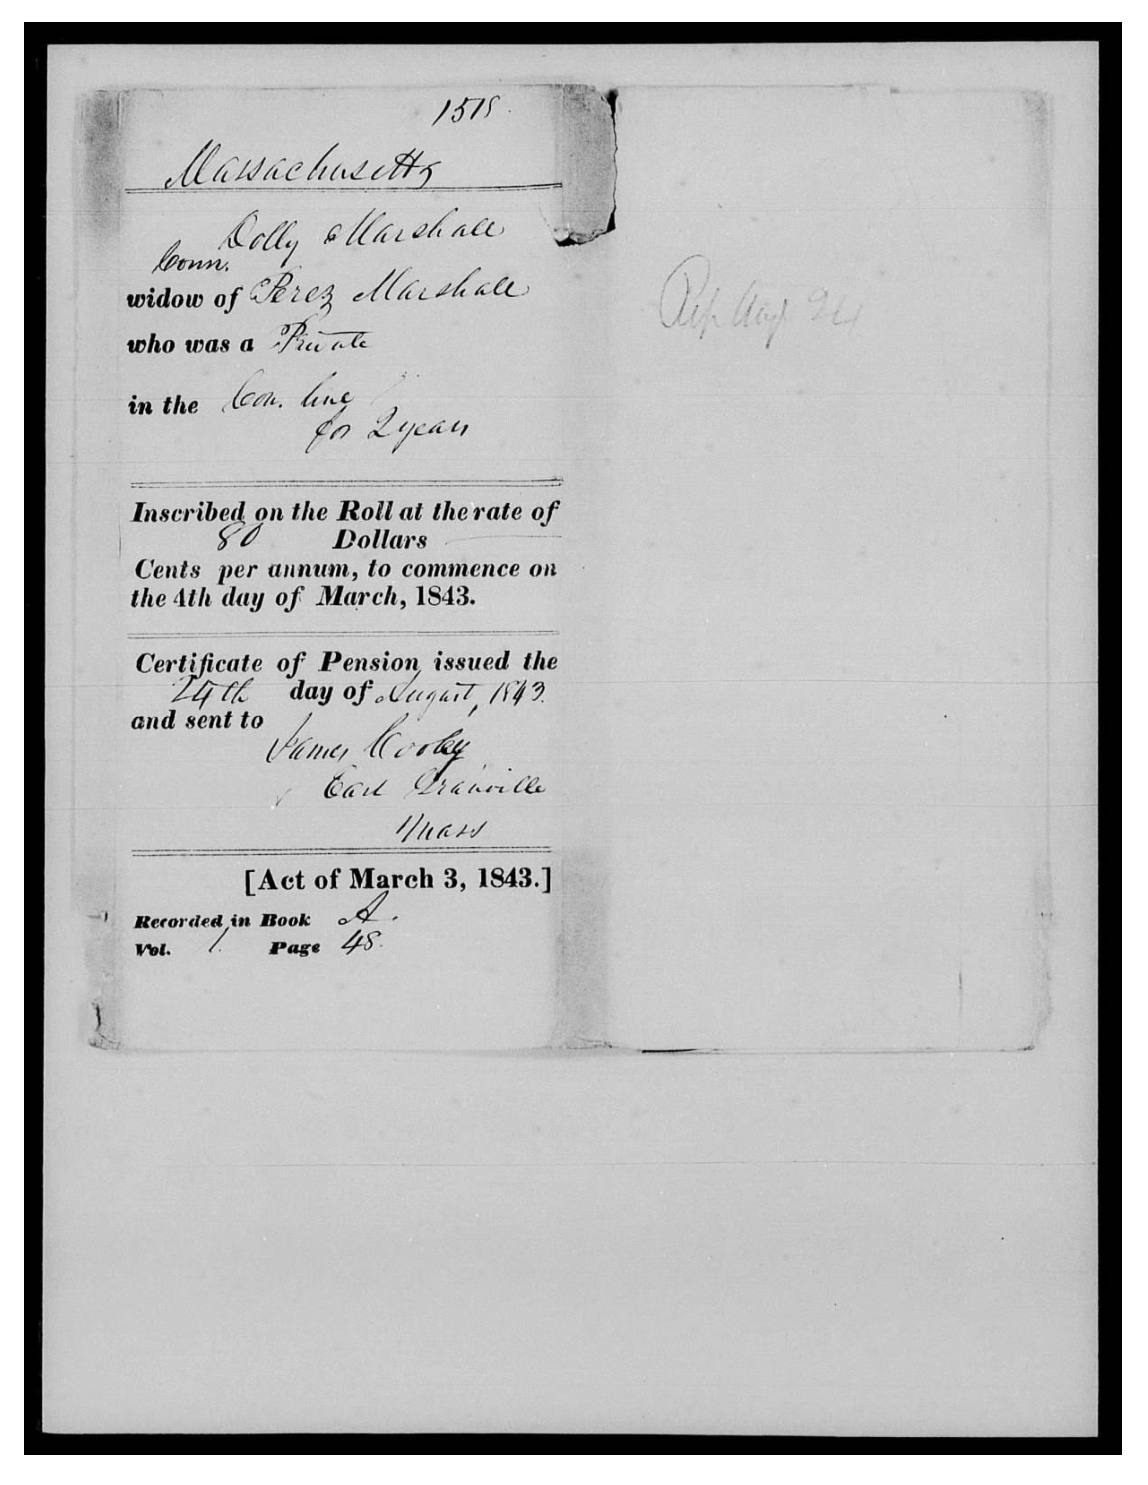 1518.
Massachusetts
Dolly Marshall
Conn.
widow of Perez Marshall
who was a Private
in the Con. line
for 2 years
Inscribed on the Roll at the rate of
80 Dollars
Cents per annum, to commence on
the 4th day of March, 1843.
Certificate of Pension issued the
24th day of August, 1843.
and sent to
James Cooley
East Granville
Mass
[Act of March 3, 1843.]
Recorded in Book A.
Vol. 1. Page 48.
Rep. Aug 24